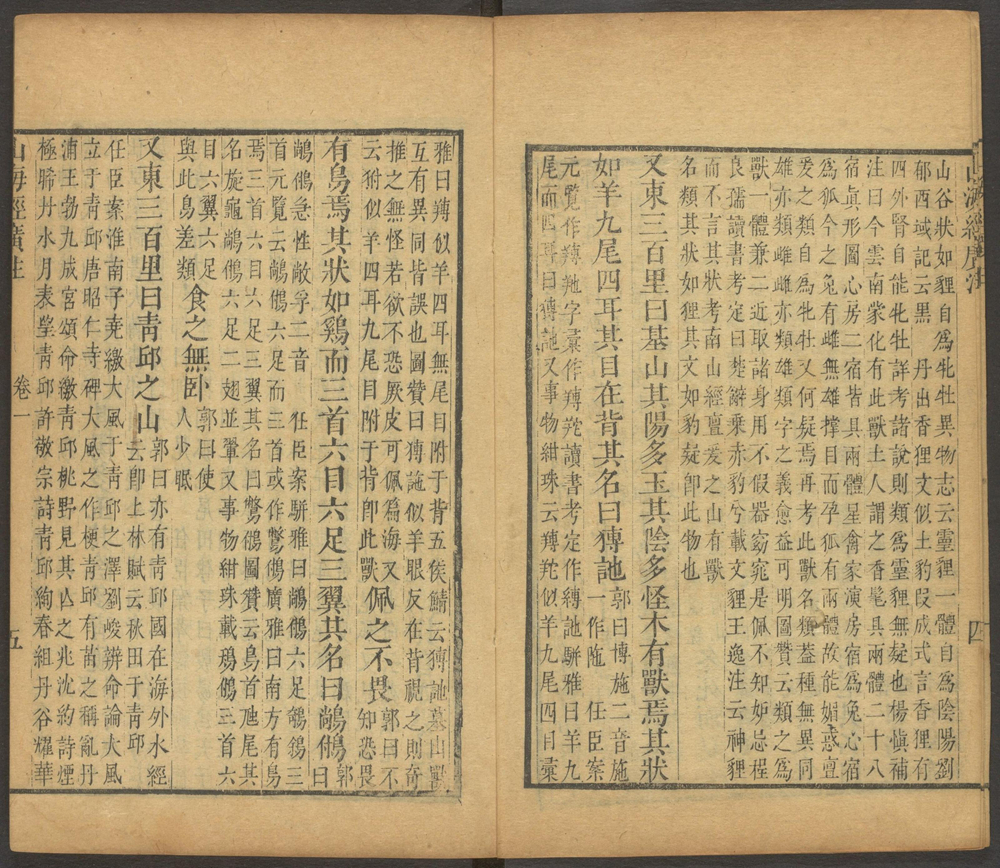 山海經廣注
山谷狀如貍自爲牝牡異物志云靈貍一體自爲陰陽劉
郁西域記云黑 丹出香貍文似土豹段成式言香貍有
四外腎自能牝牡詳考諸說則類爲靈貍無疑也楊愼補
注曰今雲南蒙化有此獸土人謂之香髦具兩體二十八
宿眞形圖心房二宿皆具兩體星禽家演房宿爲兔心宿
爲狐今之兔有雌無雄撑目而孕狐有兩體故能媚惑亶
爰之類自爲牝牡又何疑焉再考此獸名類蓋種無異同
雄亦類雌雌亦類雄類字之義愈益可明圖贊云類之爲
獸一體兼二近取諸身用不假器窈窕是佩不知妒忌桯
良孺讀書考定曰楚辭乗赤豹兮載文貍王逸注云神貍
而不言其狀考南山經亶爰之山有獸
名類其狀如狸其文如豹疑卽此物也
又東三百里曰基山其陽多玉其陰多怪木有獸焉其狀
如羊九尾四耳其目在背其名曰猼訑郭曰博施二音施一作陁 任臣案
元覽作䍸䍫字彙作䍸羠讀書考定作縛訑駢雅曰羊九
尾而四耳曰猼訑又事物紺珠云䍸羠似羊九尾四目彙
四
雅曰䍸似羊四耳無尾目附于背五侯鯖云猼訑基山獸
互有異同皆誤也圖贊曰猼訑似羊眼反在背視之則奇
推之無怪若欲不恐厥皮可佩爲海又
云猼似羊四耳九尾目附于背卽此獸佩之不畏郭曰不知恐畏
有鳥焉其狀如鷄而三首六目六足三翼其名曰䳤䳜郭曰
䳤䳜急性敞孚二音 任臣案駢雅曰䳤䳜六足鵸鵌三
首元覽云䳤䳜六足而三首或作鷩䳜廣雅曰南方有鳥
焉三首六目六足三翼其名曰鷩䳜圖贊云鳥首虺尾其
名旋龜䳤䳜六足二翅並翬又事物紺珠載鵚䳜三首六
目六翼六足
與此鳥差類食之無卧郭曰使人少眠
又東三百里曰靑邱之山郭曰亦有靑邱國在海外水經云卽上林賦云秋田于靑邱
任臣案淮南子堯繳大風于靑邱之澤劉峻辨命論大風
立于靑邱唐昭仁寺碑大風之作梗靑邱有苗之稱亂丹
浦王勃九成宮頌命繳靑邱桃野見其亾之兆沈約詩煙
極睎丹水月表望靑邱許敬宗詩靑邱絢春組丹谷耀華
山海經廣注 卷一 五